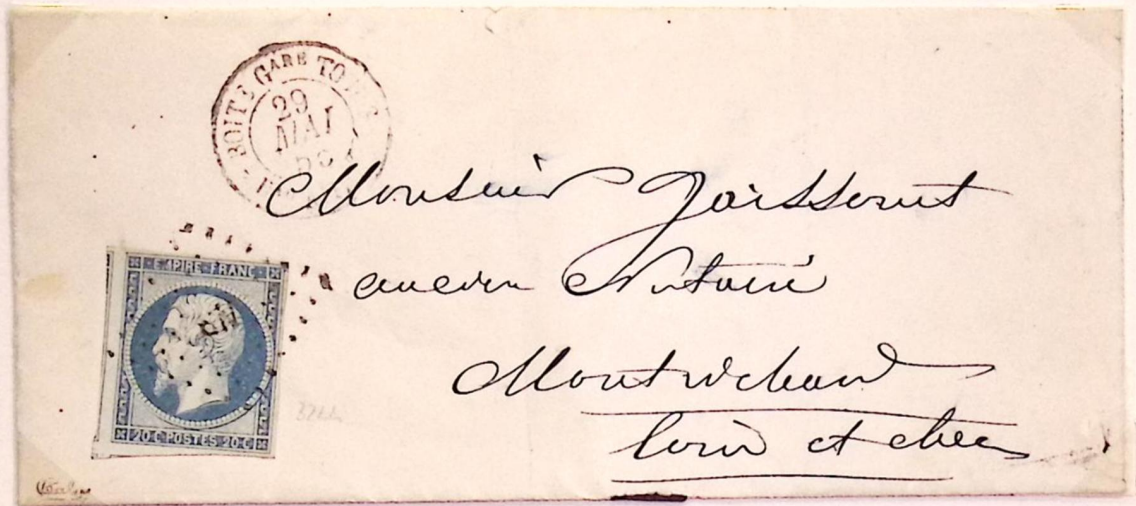 BOITE GARE TOURS
29
MAI
56
Monsieur
ancien Notaire
Montrichard
Loir et cher
EMPIRE FRANC
20 C POSTES 20 C